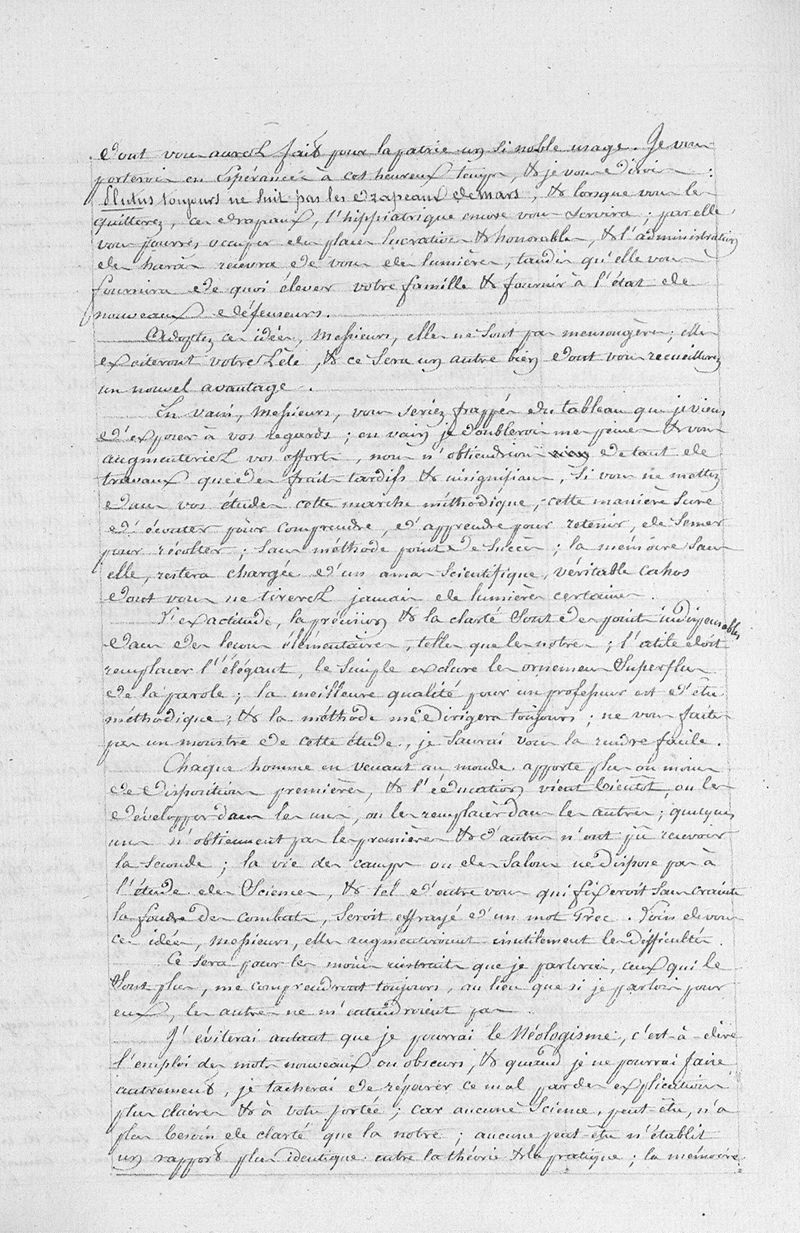 dont vous aurez fait pour la patrie un si noble usage. Je vous
porterois en espérance à ces heureux temps, & je vous dirois :
Plutus toujours ne suit pas les drapeaux de mars, & lorsque vous les
quitterez, ces drapeaux, l'hippiatrique encore vous servira ; par elle
vous pourrés occuper des places lucratives & honorables, & l'administration
des haras recevra de vous des lumieres, tandis qu'elle vous
fournira de quoi élever votre famille & fournir à l'état de
nouveaux défenseurs.
Adoptez ces idées, Messieurs, elles ne sont pas mensongères ; elles
exciteront votre zèle, & ce sera un autre bien dont vous recueillerez
un nouvel avantage.
En vain, Messieurs, vous seriez frappés du tableau que je viens
d'exposer à vos regards ; en vain je doublerois mes peines & vous
augmenteriez vos efforts, nous n'obtiendrions de tant de
travaux que des fruits tardifs & insignifians, si vous ne mettez
dans vos études cette marche méthodique, cette manière sure
d'écouter pour comprendre, d'apprendre pour retenir, de semer
pour récolter ; sans méthode point de succès ; la mémoire sans
elle, restera chargée d'un amas scientifique, véritable cahos
dont vous ne tirerez jamais de lumières certaines.
L'exactitude, la précision & la clarté sont des points indispensables
dans des leçons élémentaires, telles que les notres ; l'utile doit
remplacer l'élégant, le simple exclure les ornemens superflus
de la parole ; la meilleure qualité pour un professeur est d'être
méthodique ; & la méthode me dirigera toujours ; ne vous faites
pas un monstre de cette étude, je saurai vous la rendre facile.
Chaque homme en venant au monde apporte plus ou moins
de dispositions premières, & l'éducation vient bientôt, ou les
développer dans les uns, ou les remplacer dans les autres ; quelques
uns n'obtiennent pas les premières & d'autres n'ont pû recevoir
la seconde ; la vie des camps ou des salons ne dispose pas à
l'étude des Sciences, & tel d'entre vous qui fixeroit sans crainte
la foudre des combats, seroit effrayé d'un mot Grec. Loin de vous
ces idées, Messieurs, elles augmenteroient inutilement les difficultés.
Ce sera pour les moins instruits que je parlerai, ceux qui le
sont plus, me comprendront toujours, au lieu que si je parlois pour
eux, les autres ne m'entendroient pas.
J'éviterai autant que je pourrai le Néologisme, c'est-à-dire
l'emploi des mots nouveaux ou obscurs, & quand je ne pourrai faire
autrement, je tacherai de réparer ce mal par des explications
plus claires & à votre portée ; car aucune Science, peut-être, n'a
plus besoin de clarté que la notre ; aucune peut-être n'établit
un rapport plus identique entre la théorie & la pratique ; la mémoire